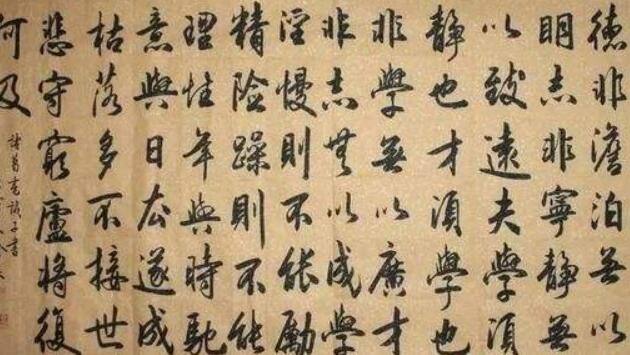 德非澹泊無以
明志非寧靜無
以致遠夫學須
靜也才須學也
非學無以廣才
非志無以成學
淫慢則不能勵
精險躁則不能
理性年與時馳
意與日去遂成
枯落多不接世
悲守窮廬將復
何及
諸葛亮誡子書